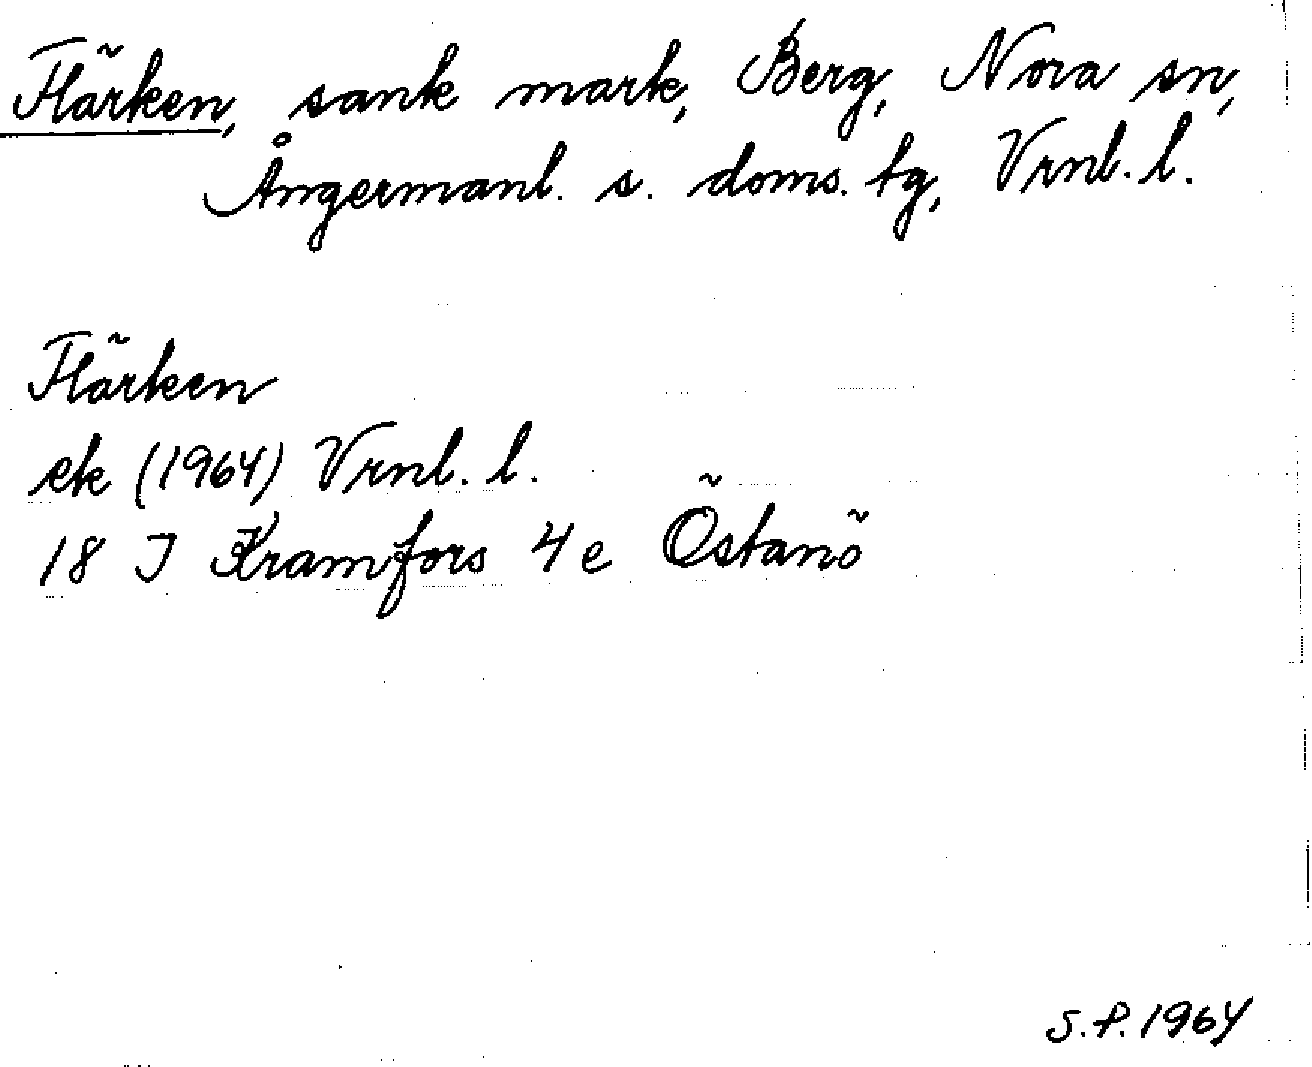 Flärken, sank mark, Berg, Nora sn,
Ångermanl. s. doms. tg, Vrnl. l.
Flärken
ek (1964) Vrnl. l.
18 I Kramfors 4 e Östanö
S.P. 1964